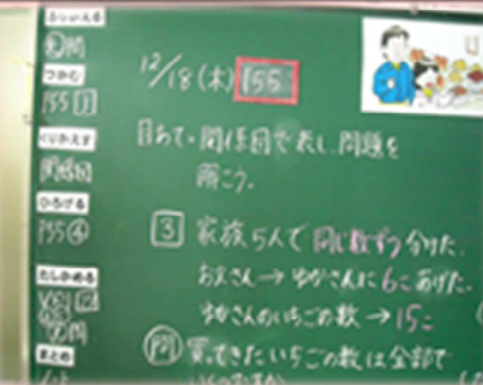 ふりかえる
つかむ
P55 3
くりかえす
関係図
ひろげる
P55 ④
たしかめる
まとめ
12/18(木) P55
目あて・関係図で表し、問題を
解こう。
3 家族5人で同じ数ずつ分けた。
お父さん→ゆかさんに6こあげた。
ゆかさんのいちごの数→15こ
問 買ってきたいちごの数は全部で